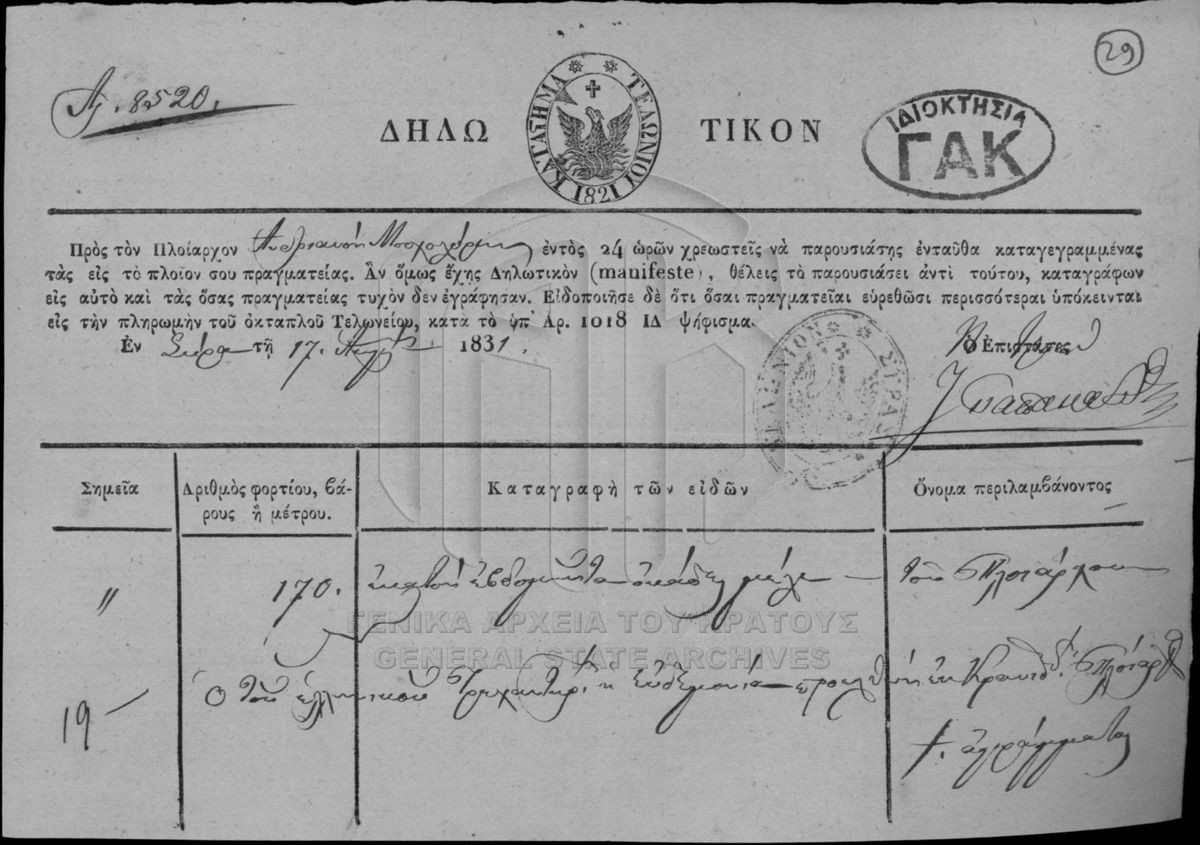 29
Αρ. 8520.
ΔΗΛΩ ΤΙΚΟΝ
ΚΑΤΑΣΤΗΜΑ ΤΕΛΩΝΙΟΥ 1821
ΙΔΙΟΚΤΗΣΙΑ
ΓΑΚ
Πρὸς τὸν Πλοίαρχον ἐντὸς 24 ὡρῶν χρεωστεῖς νὰ παρουσιάσῃς ἐνταῦθα καταγεγραμμένας
τὰς εἰς τὸ πλοῖον σου πραγματείας. Ἂν ὅμως ἔχῃς Δηλωτικὸν (manifeste), θέλεις τὸ παρουσιάσει ἀντὶ τούτου, καταγράφων
εἰς αὐτὸ καὶ τὰς ὅσας πραγματείας τυχὸν δεν ἐγράφησαν. Εἰδοποιῆσε δὲ ὅτι ὅσαι πραγματεῖαι εὑρεθῶσι περισσότεραι ὑπόκεινται
εἰς τὴν πληρωμὴν τοῦ ὀκταπλοῦ Τελωνείου, κατὰ τὸ ὑπ' Ἀρ. 1018 ΙΔ ψήφισμα.
Ἐν Σύρᾳ τῇ 17. Αὐγ. 1831.
Ὁ Ἐπιστάτες
ΤΕΛΩΝΙΟΝ ΣΥΡΑΣ
Σημεῖα
Ἀριθμὸς φορτίου, βά-
ρους ἢ μέτρου.
Καταγραφὴ τῶν εἰδῶν
Ὄνομα περιλαμβάνοντος
〃 170. ἑκατὸν ἑβδομήντα ὀκάδες μέλι — τοῦ Πλοιάρχου
ΓΕΝΙΚΑ ΑΡΧΕΙΑ ΤΟΥ ΚΡΑΤΟΥΣ
GENERAL STATE ARCHIVES
19 – Ὁ τοῦ ἑλληνικοῦ Τρεχαντ. ἡ Εὐδαιμονία ἐκ Κρανιδ. Πλοίαρχ
ἀγράμματος